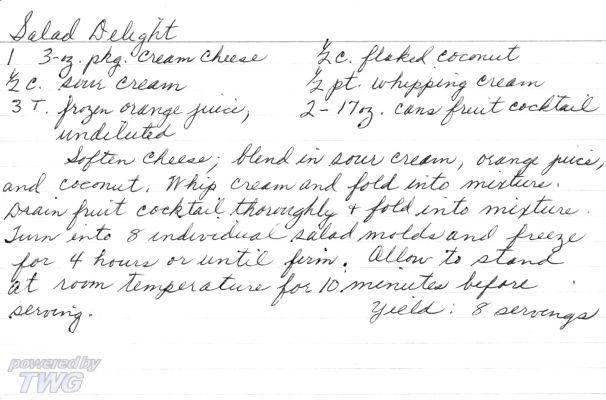 Salad Delight
1 3-oz. pkg. cream cheese ½ c. flaked coconut
½ c. sour cream ½ pt. whipping cream
3 T. frozen orange juice, 2-17oz. cans fruit cocktail
undiluted
Soften cheese; blend in sour cream, orange juice,
and coconut. Whip cream and fold into mixture.
Drain fruit cocktail thoroughly & fold into mixture.
Turn into 8 individual salad molds and freeze
for 4 hours or until firm. Allow to stand
at room temperature for 10 minutes before
serving. Yield: 8 servings
powered by
TWG